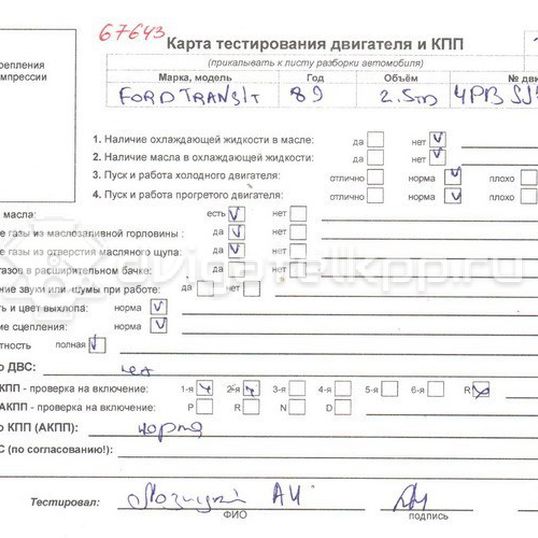 67643
Карта тестирования двигателя и КПП
(прикалывать к листу разборки автомобиля)
репления
мпрессии
Марка, модель Год Объём № дви
FORD TRANSIT 89 2.5TD 4PB
1. Наличие охлаждающей жидкости в масле: да нет V
2. Наличие масла в охлаждающей жидкости: да нет V
3. Пуск и работа холодного двигателя: отлично норма V плохо
4. Пуск и работа прогретого двигателя: отлично норма V плохо
масла: есть V нет
е газы из маслозаливной горловины: да V нет
е газы из отверстия масляного щупа: да V нет
газов в расширительном бачке: да нет
ние звуки или шумы при работе: да нет
ть и цвет выхлопа: норма V
ние сцепления: норма V
тность полная V
dvigatelkpp.ru
о ДВС:
КПП - проверка на включение: 1-я 2-я 3-я 4-я 5-я 6-я R
АКПП - проверка на включение: P R N D
о КПП (АКПП): норма
С (по согласованию!):
Тестировал: АИ
ФИО подпись